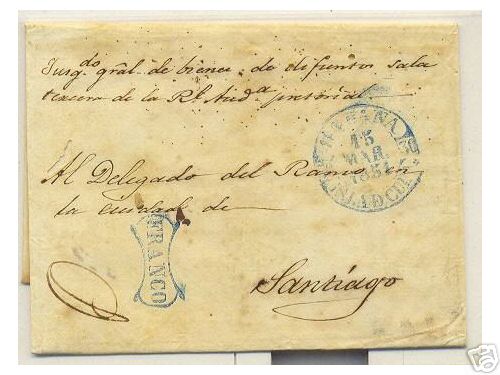 Jusgdo gral. de bienes de difuntos sala
tercera de la Rl. Auda. pretorial.
HABANA
15
MAR.
1851
ISLA D CUBA
Al Delegado del Ramo en
la ciudad de
FRANCO
Santiago